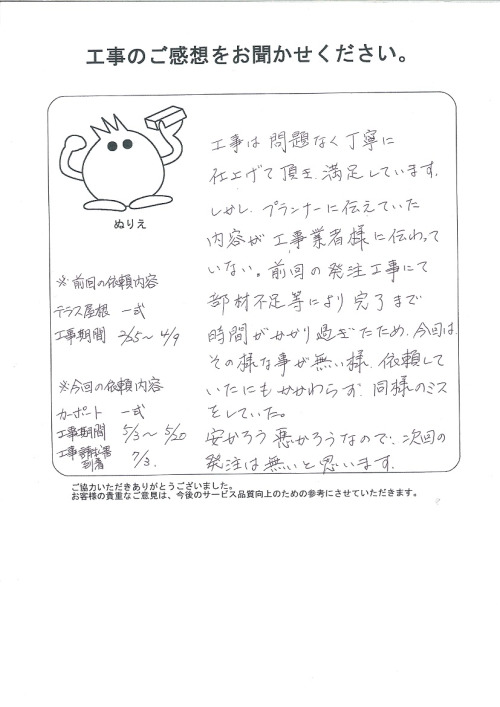 工事のご感想をお聞かせください。
ぬりえ
工事は問題なく丁寧に
仕上げて頂き、満足しています。
しかし、プランナーに伝えていた
内容が工事業者様に伝わって
いない。前回の発注工事にて
部材不足等により完了まで
時間がかかり過ぎたため、今回は
その様な事が無い様、依頼して
いたにもかかわらず、同様のミス
をしていた。
安かろう悪かろうなので、次回の
発注は無いと思います。
※前回の依頼内容
テラス屋根 一式
工事期間 2/25～4/9
※今回の依頼内容
カーポート 一式
工事期間 5/3～5/20
工事請払書
到着 7/3.
ご協力いただきありがとうございました。
お客様の貴重なご意見は、今後のサービス品質向上のための参考にさせていただきます。